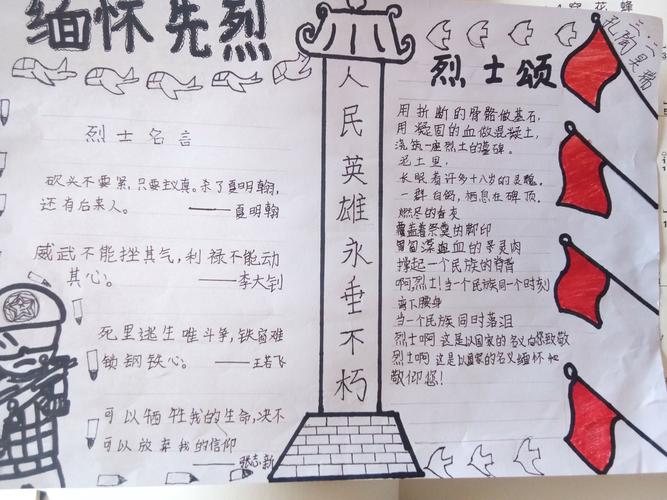 缅怀先烈
烈士名言
砍头不要紧,只要主义真。杀了夏明翰,
还有后来人。——夏明翰
威武不能挫其气,利禄不能动
其心。——李大钊
死里逃生唯斗争,铁窗难
锁钢铁心。——王若飞
可以牺牲我的生命,决不
可以放弃我的信仰
——张志新
人民英雄永垂不朽
三.二
烈士颂
用折断的骨骼做基石,
用凝固的血做混凝土,
浇筑一座烈士的墓碑。
泥土里,
长眠着许多十八岁的灵魂。
一群白鸽,栖息在碑顶。
燃尽的香灰
覆盖着祭奠的脚印
血的景灵肉
撑起一个民族的脊背
啊,烈士!当一个民族同一个时刻
弯下腰身
当一个民族同时落泪
烈士啊 这是以国家的名义向您致敬
烈士啊 这是以国家的名义缅怀
敬仰您!